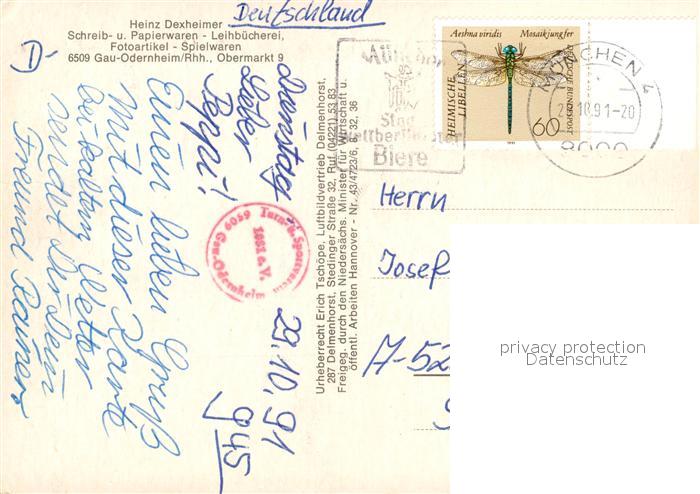 Heinz Dexheimer
Schreib- u. Papierwaren - Leihbücherei,
Fotoartikel - Spielwaren
6509 Gau-Odernheim/Rhh., Obermarkt 9
Deutschland
Dienstag
Lieber
Peppi!
29.10.91
945
Einen lieben Gruß
Mit dieser Karte
sendet Dir Dein
Freund Rainer
Turn-u. Sport
1881 e.V.
6509 Gau-Odernheim
Urheberrecht Erich Tschöpe, Luftbildvertrieb Delmenhorst,
287 Delmenhorst, Stedinger Straße 32, Ruf (04221) 53 83
Freigeg. durch den Niedersächs. Minister für Wirtschaft u.
öffentl. Arbeiten Hannover - Nr. 43/4723/6, B 32, 36
München
Stadt
weltberühmter
Biere
Aeshna viridis Mosaikjungfer
HEIMISCHE
LIBELLEN
DEUTSCHE BUNDESPOST
60
1991
MÜNCHEN
.10.91-20
8000
Herrn
Josef
A-52
privacy protection
Datenschutz